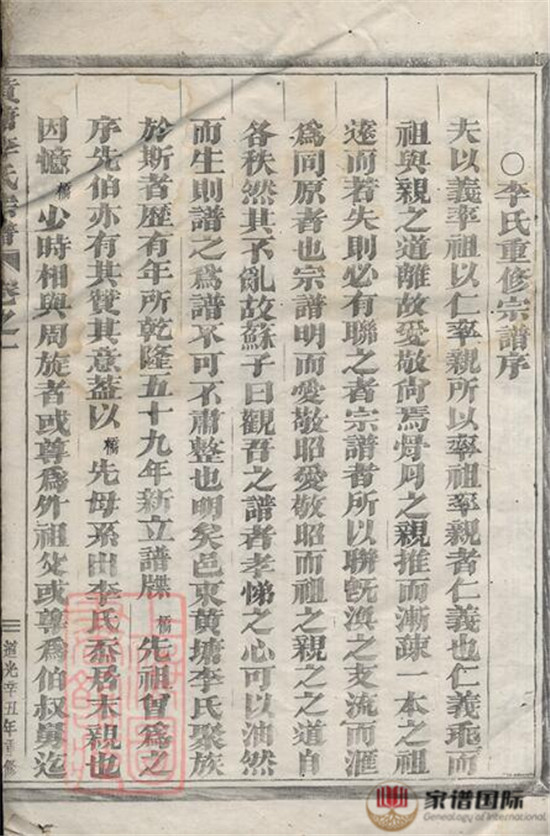 ○李氏重修宗譜序
夫以義率祖以仁率親所以率祖率親者仁義也仁義乖而
祖與親之道離故愛敬尚焉骨月之親推而漸疎一本之祖
遠而若失則必有聯之者宗譜者所以聯旣渙之支流而滙
爲同原者也宗譜明而愛敬昭愛敬昭而祖之親之之道自
各秩然其不亂故蘇子曰觀吾之譜者孝悌之心可以油然
而生則譜之爲譜不可不肅整也明矣邑東黃塘李氏聚族
於斯者歷有年所乾隆五十九年新立譜牒 橋先祖曾爲之
序先伯亦有其贊其意葢以 橋先母系出李氏忝居末親也
因憶 橋少時相與周旋者或尊爲外祖父或尊爲伯叔舅迄
黃塘李氏宗譜 卷之一
道光辛丑年重修
家谱国际
Genealogy of International